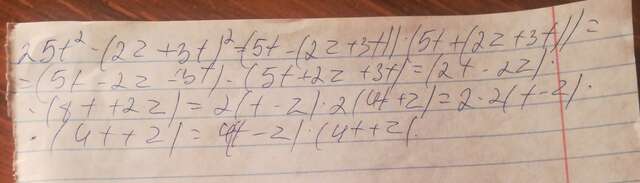 25t² - (2z + 3t)² = (5t - (2z + 3t)) · (5t + (2z + 3t)) =
= (5t - 2z - 3t) · (5t + 2z + 3t) = (2t - 2z) ·
· (8t + 2z) = 2(t - z) · 2(4t + z) = 2 · 2(t - z) ·
· (4t + z) = 4(t - z) · (4t + z).